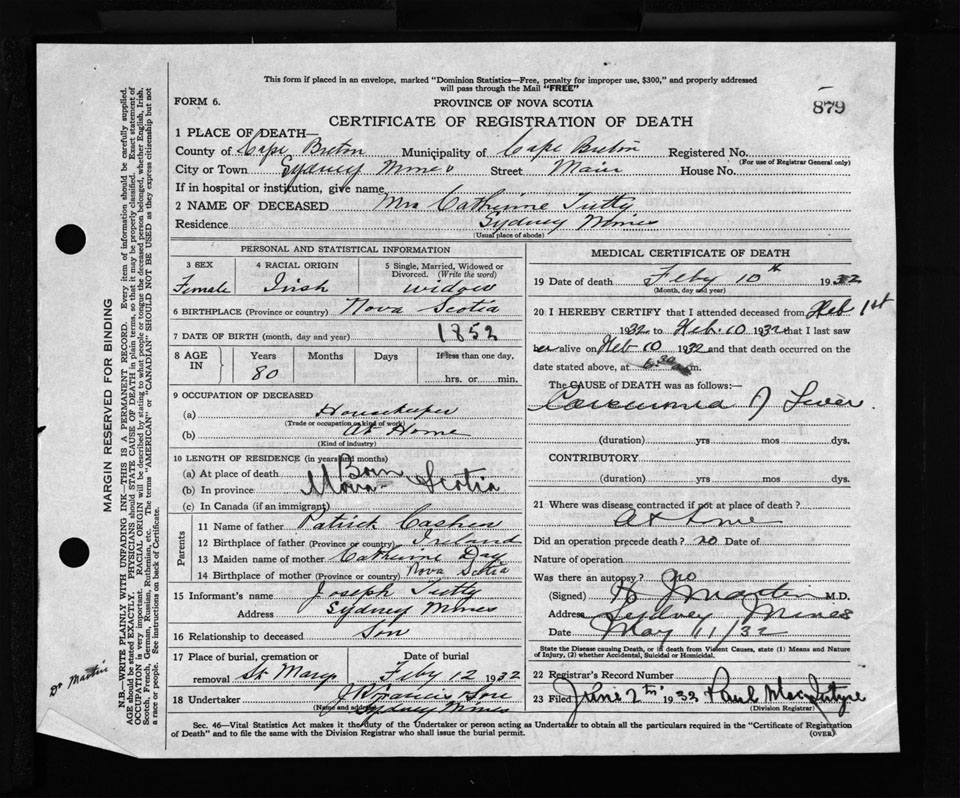 This form if placed in an envelope, marked "Dominion Statistics—Free, penalty for improper use, $300," and properly addressed
will pass through the Mail "FREE"
FORM 6.
PROVINCE OF NOVA SCOTIA
879
CERTIFICATE OF REGISTRATION OF DEATH
1 PLACE OF DEATH—
County of Cape Breton Municipality of Cape Breton Registered No.
(For use of Registrar General only)
City or Town Sydney Mines Street Main House No.
If in hospital or institution, give name
2 NAME OF DECEASED Mrs Catherine Tutty
Residence Sydney Mines
(Usual place of abode)
PERSONAL AND STATISTICAL INFORMATION
3 SEX
Female
4 RACIAL ORIGIN
Irish
5 Single, Married, Widowed or
Divorced. (Write the word)
widow
6 BIRTHPLACE (Province or country) Nova Scotia
7 DATE OF BIRTH (month, day and year) 1852
8 AGE IN
Years Months Days If less than one day.
80
hrs. or min.
9 OCCUPATION OF DECEASED
(a) Housekeeper
(Trade or occupation or kind of work)
(b) At Home
(Kind of industry)
10 LENGTH OF RESIDENCE (in years and months)
(a) At place of death Born
(b) In province Nova Scotia
(c) In Canada (if an immigrant)
Parents
11 Name of father Patrick Cashen
12 Birthplace of father (Province or country) Ireland
13 Maiden name of mother Catherine Day
14 Birthplace of mother (Province or country) Nova Scotia
15 Informant's name Joseph Tutty
Address Sydney Mines
16 Relationship to deceased Son
17 Place of burial, cremation or
removal St Marys
Date of burial
Feby 12 1932
18 Undertaker
(Name and address) Sydney Mines
MEDICAL CERTIFICATE OF DEATH
19 Date of death Feby 10th 1932
(Month, day and year)
20 I HEREBY CERTIFY that I attended deceased from Feb. 1st
1932 to Feb. 10 1932 that I last saw
her alive on Feb 10 1932 and that death occurred on the
date stated above, at 6.30 a.m.
The CAUSE of DEATH was as follows:—
Carcinoma of Liver.
(duration) yrs mos dys.
CONTRIBUTORY
(duration) yrs mos dys.
21 Where was disease contracted if not at place of death?
At home
Did an operation precede death? no Date of
Nature of operation
Was there an autopsy? no
(Signed) Martin M.D.
Address Sydney Mines
Date May 11/32
State the Disease causing Death, or in death from Violent Causes, state (1) Means and Nature
of Injury, (2) whether Accidental, Suicidal or Homicidal.
22 Registrar's Record Number
23 Filed June 7th 1933 Paul MacIntyre
(Division Registrar)
Sec. 46—Vital Statistics Act makes it the duty of the Undertaker or person acting as Undertaker to obtain all the particulars required in the "Certificate of Registration
of Death" and to file the same with the Division Registrar who shall issue the burial permit.
(OVER)
MARGIN RESERVED FOR BINDING
N.B.—WRITE PLAINLY WITH UNFADING INK—THIS IS A PERMANENT RECORD. Every item of information should be carefully supplied.
AGE should be stated EXACTLY. PHYSICIANS should STATE CAUSE OF DEATH in plain terms, so that it may be properly classified. Exact statement of
OCCUPATION is very important. RACIAL ORIGIN will be described by stating to what people or tongue the deceased person belonged, whether English, Irish,
Scotch, French, German, Russian, Ruthenian, etc. The terms "AMERICAN" or "CANADIAN" SHOULD NOT BE USED as they express citizenship but not
a race or people. See instructions on back of Certificate.
Dr Martin